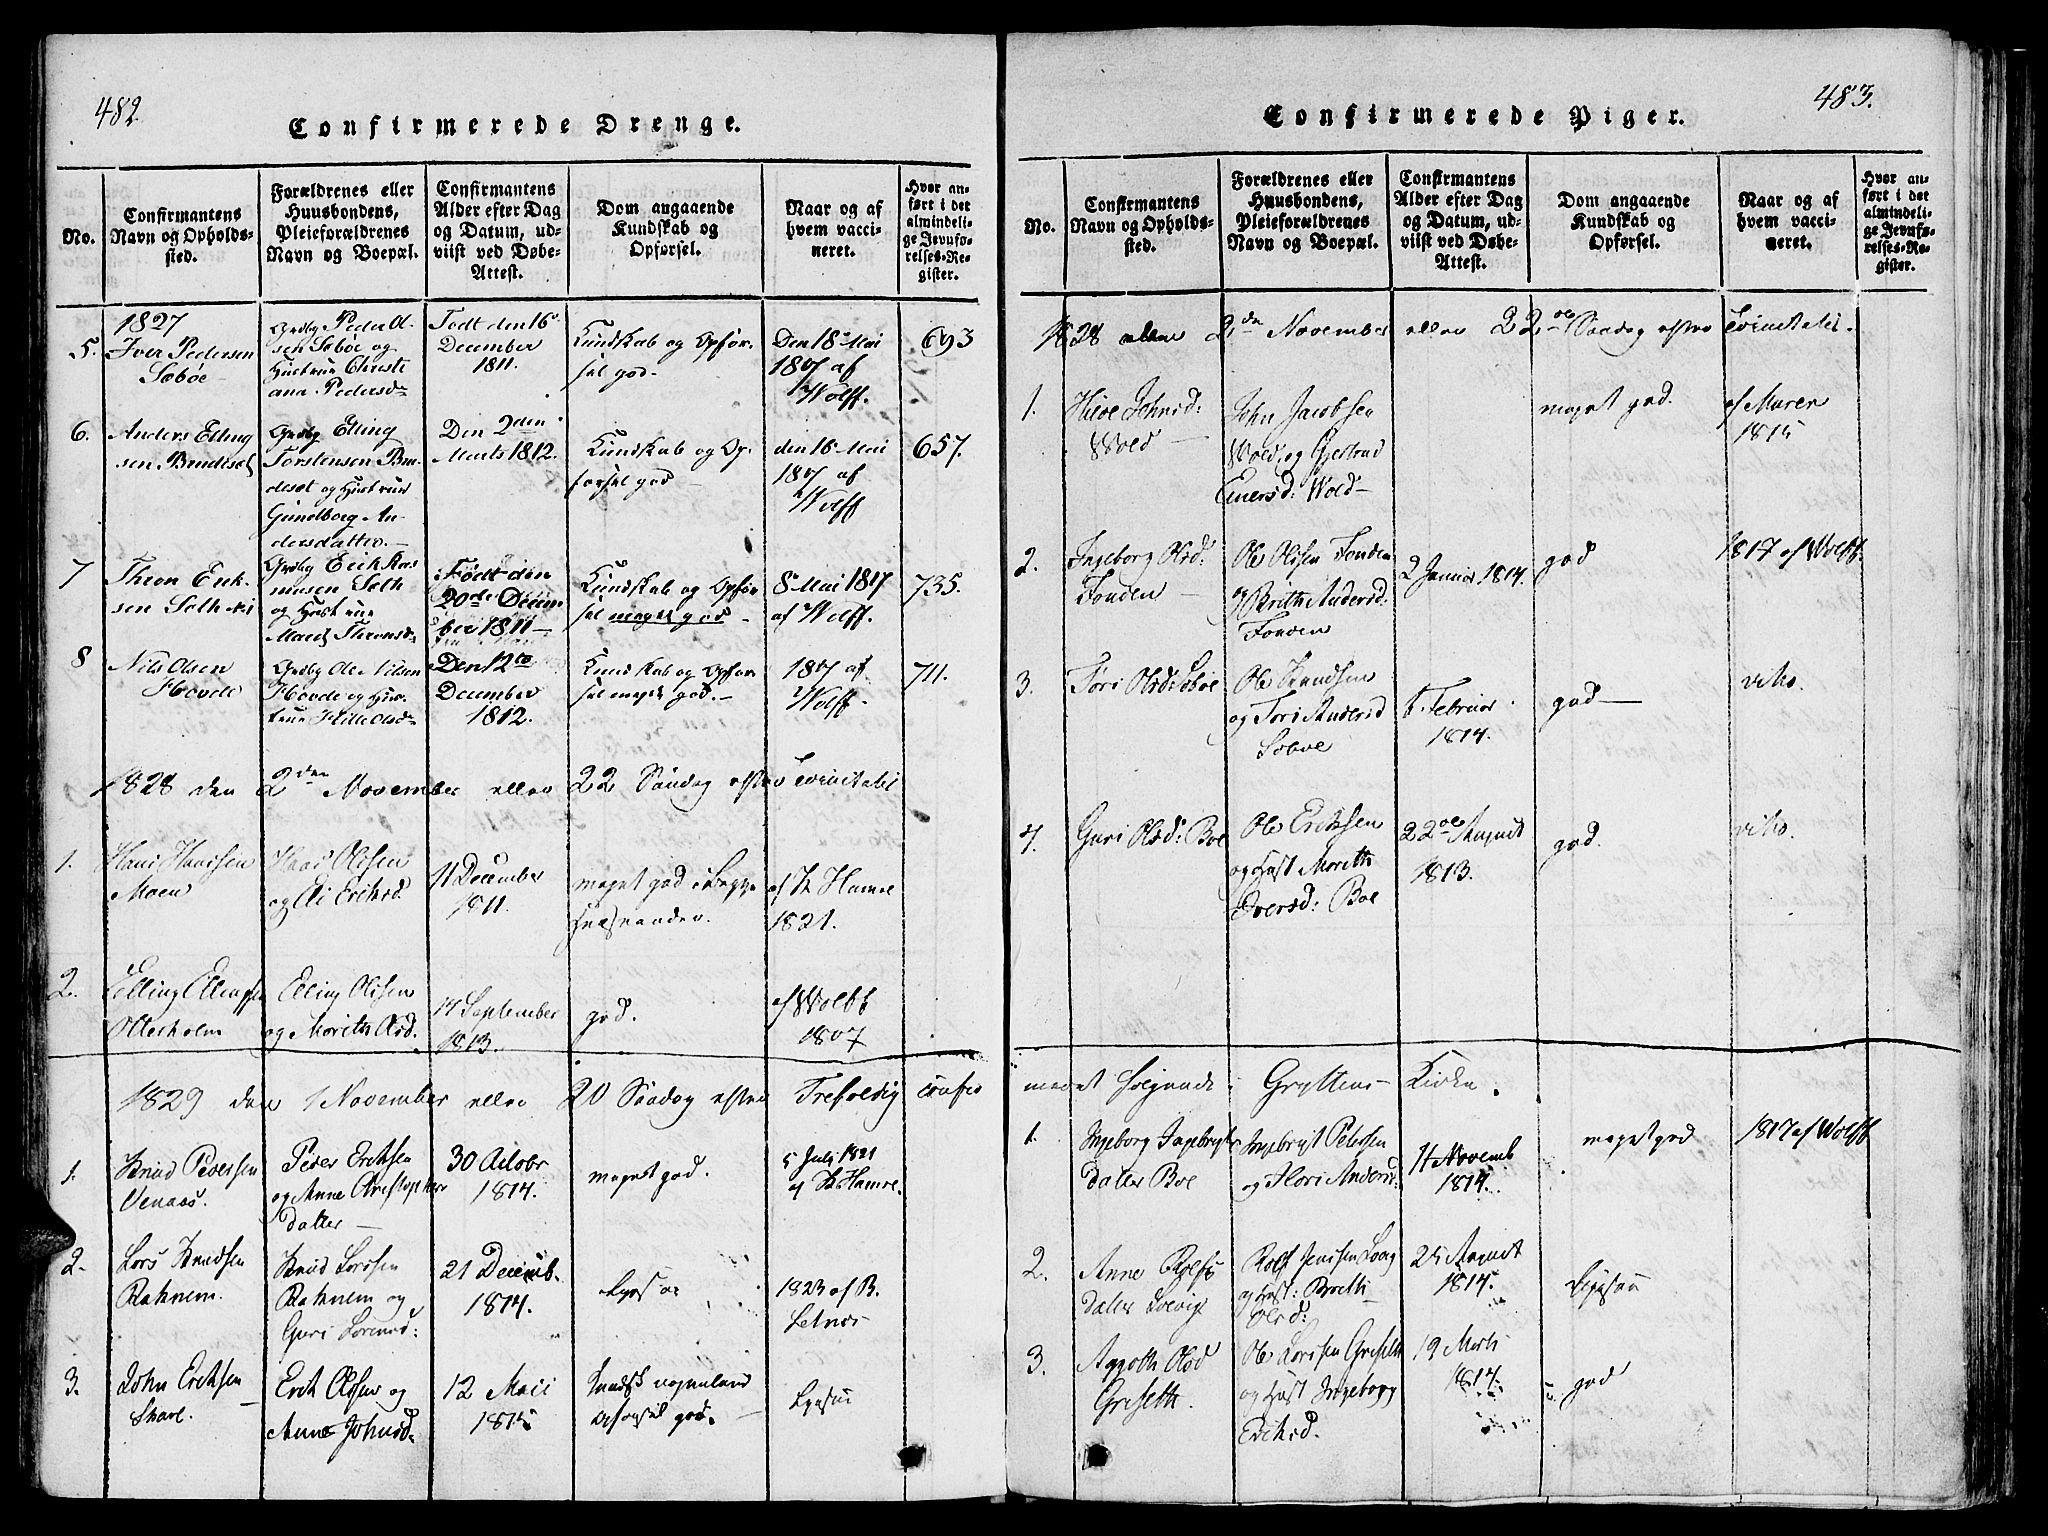 482
Confirmerede Drenge.
No.
Confirmantens
Navn og Opholds-
sted.
Forældrenes eller
Huusbondens,
Pleieforældrenes
Navn og Boepæl.
Confirmantens
Alder efter Dag
og Datum, ud-
viist ved Døbe-
Attest.
Dom angaaende
Kundskab og
Opførsel.
Naar og af
hvem vacci-
neret.
Hvor an-
ført i det
almindeli-
ge Jevnfø-
relses-Re-
gister.
1827
5.
Iver Pedersen
Søbøe
Grdbr Peder Ol-
sen Søbøe og
Hustrue Christi
ana Pedersd
Født den 16
December
1811.
Kundskab og Opfør-
sel god.
Den 18 Mai
1817 af
Wolff.
693
6.
Anders Elling
sen Brudeset
Elling
Torstensen Bru-
deset og Hustrue
Gundborg An-
dersdatter.
Den 2den
Marts 1812.
Kundskab og Op-
førsel god
den 16 Mai
1817 af
Wolff
657.
7
Thron Erik-
sen
Erik Ras
musen
og Hustrue
Marit Thronsd
Født den
20de Decem
ber 1811
Kundskab og Opfør
sel meget god
8 Mai 1817
af Wolff.
735.
8
Nils Olsen
Hovde
Ole Nilsen
Hovde og Hus-
true Olsd
Den 12te
December
1812.
Kundskab og Opfør
sel meget god.
1817 af
Wolff.
711.
1828 den 2den November eller 22 Søndag efter Trinitatis
1.
Hans Hansen
Moen
Hans Olsen
og Eriksd
11 December
1811.
meget god i Begge
Henseender.
af K Hamre
1821.
2.
Elling Ellingsen
Otterholm
Elling Olsen
og Marith Olsd.
14 September
1813.
god.
af Wolff
1807
1829 den 1 November eller 20 Søndag efter Trefoldig
1.
Knud Pedersen
Venaas.
Peder Eriksen
og Anne Christophers
datter
30 Octobr
1814.
meget god.
5 July 1821
af K Hamre.
2.
Lars Knudsen
Raknem.
Knud Larsen
Raknem og
Guri
21 Decemb.
1814.
1823 af B.
3.
John Eriksen
Erik Olsen og
Anne Johnsd
12 Maii
1815
Opførsel god.
483.
Confirmerede Piger.
No.
Confirmantens
Navn og Opholds-
sted.
Forældrenes eller
Huusbondens,
Pleieforældrenes
Navn og Boepæl.
Confirmantens
Alder efter Dag
og Datum, ud-
viist ved Døbe-
Attest.
Dom angaaende
Kundskab og
Opførsel.
Naar og af
hvem vacci-
neret.
Hvor an-
ført i det
almindeli-
ge Jevnfø-
relses-Re-
gister.
1828 den 2den November eller 22de Søndag efter Trinitatis.
1.
Johnsd:
Wold
John Jacobsen
Wold, og Gjertrud
Einersd: Wold
meget god.
af Maren
1815
2.
Ingeborg Olsd:
Fonden
Ole Olsen Fonden
og Brith Andersd:
Fonden
2 Januar 1814.
god
1817 af Wolff
3.
Tøri Olsd: Søbøe
Ole Knudsen
og Tøri Andersd
Søbøe
Februar
1814.
god
dito.
4.
Guri Olsd: Boe
Ole Eriksen
og Hust Marith
Iversd: Boe
22de August
1813.
god.
dito.
Gryttens Kirke.
1.
Ingeborg Ingebrigts
datter Boe
Ingebrigt Petersen
og Andersd:
11 Novemb
1814.
meget god
1817 af Wolff
2.
Anne Rolfs
datter
Rolf Jensen
og Hust: Brith
Olsd:
25 August
1814.
3.
Aggoth Olsd
Griseth.
Ole Larsen Griseth
og Hust Ingeborg
Eriksd.
19 Marts
1814.
god